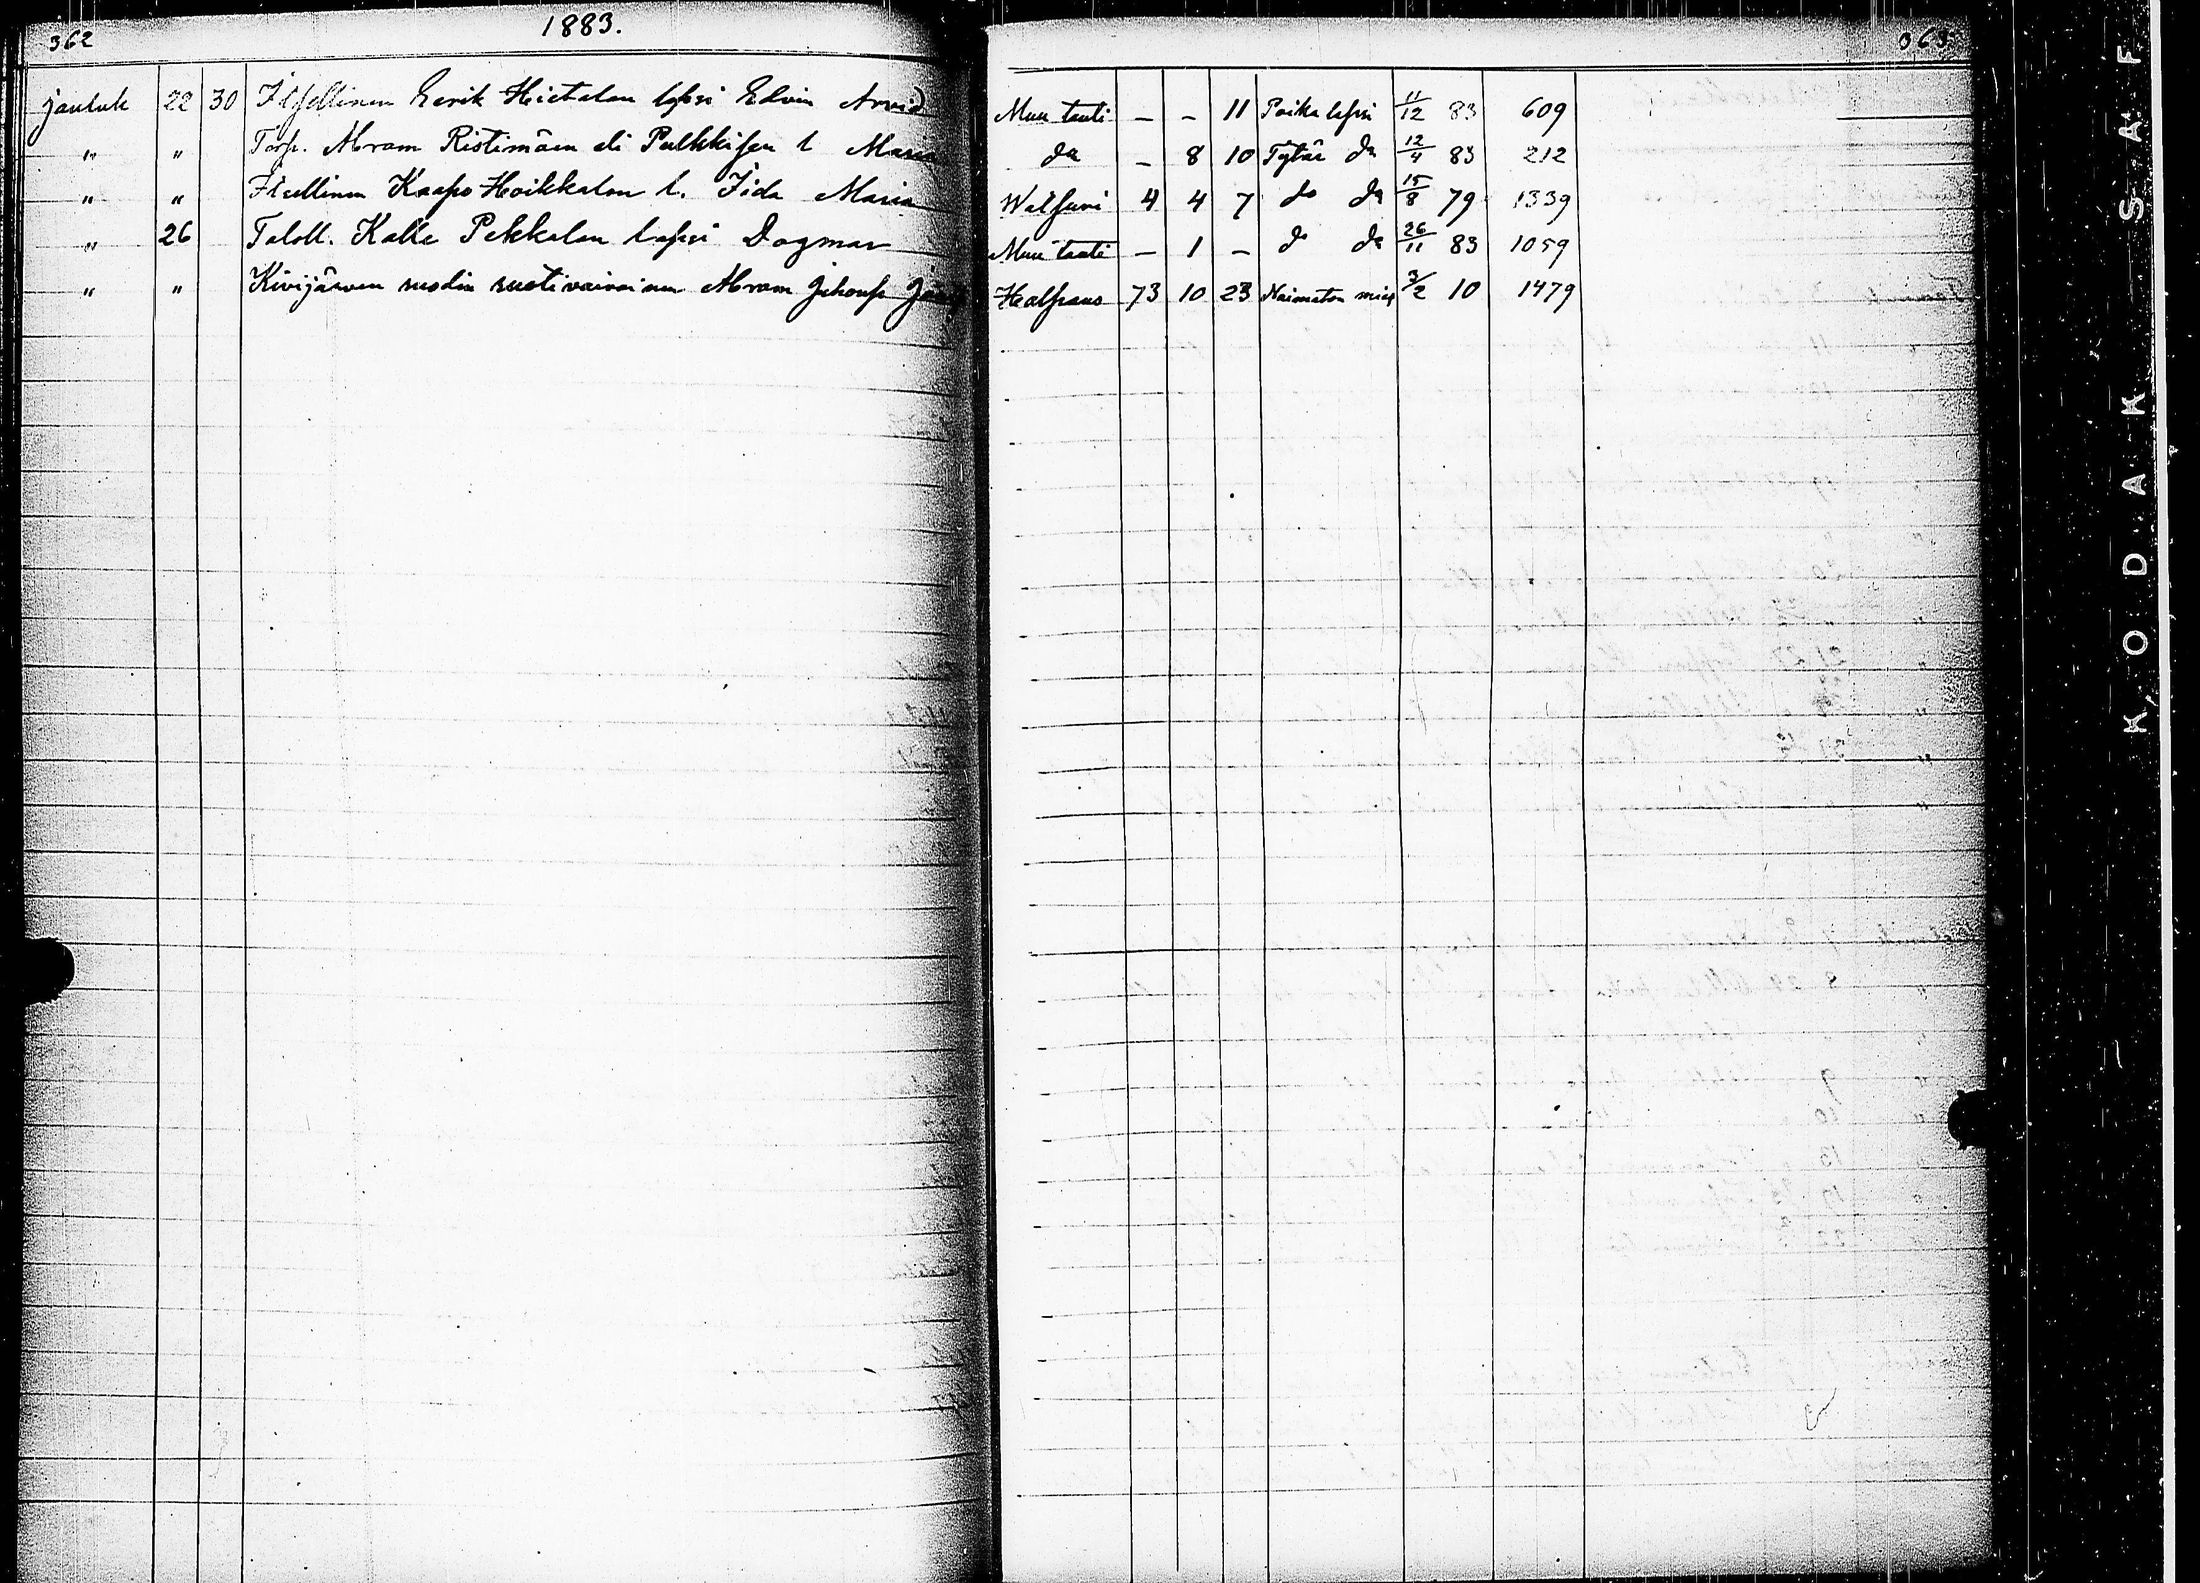 362 1883. 363
jouluk 22 30 Itsellinen Eerik Hietalan lapsi Edvin Arvid Muu tauti — — 11 Poika lapsi 11/12 83 609
" " Torp. Abram Ristimäen eli Pulkkisen l Maria do — 8 10 Tytär do 12/4 83 212
" " Itsellinen Kaapo Hoikkalan l. Iida Maria 4 4 7 do do 15/8 79 1339
" 26 Taloll. Kalle Pekkalan lapsi Dagmar Muu tauti — 1 — do do 26/11 83 1059
" " Kivijärven ruodin ruotivaivainen Abram Johansp Halfaus 73 10 23 Naimaton mies 3/2 10 1479
KODAK SAF